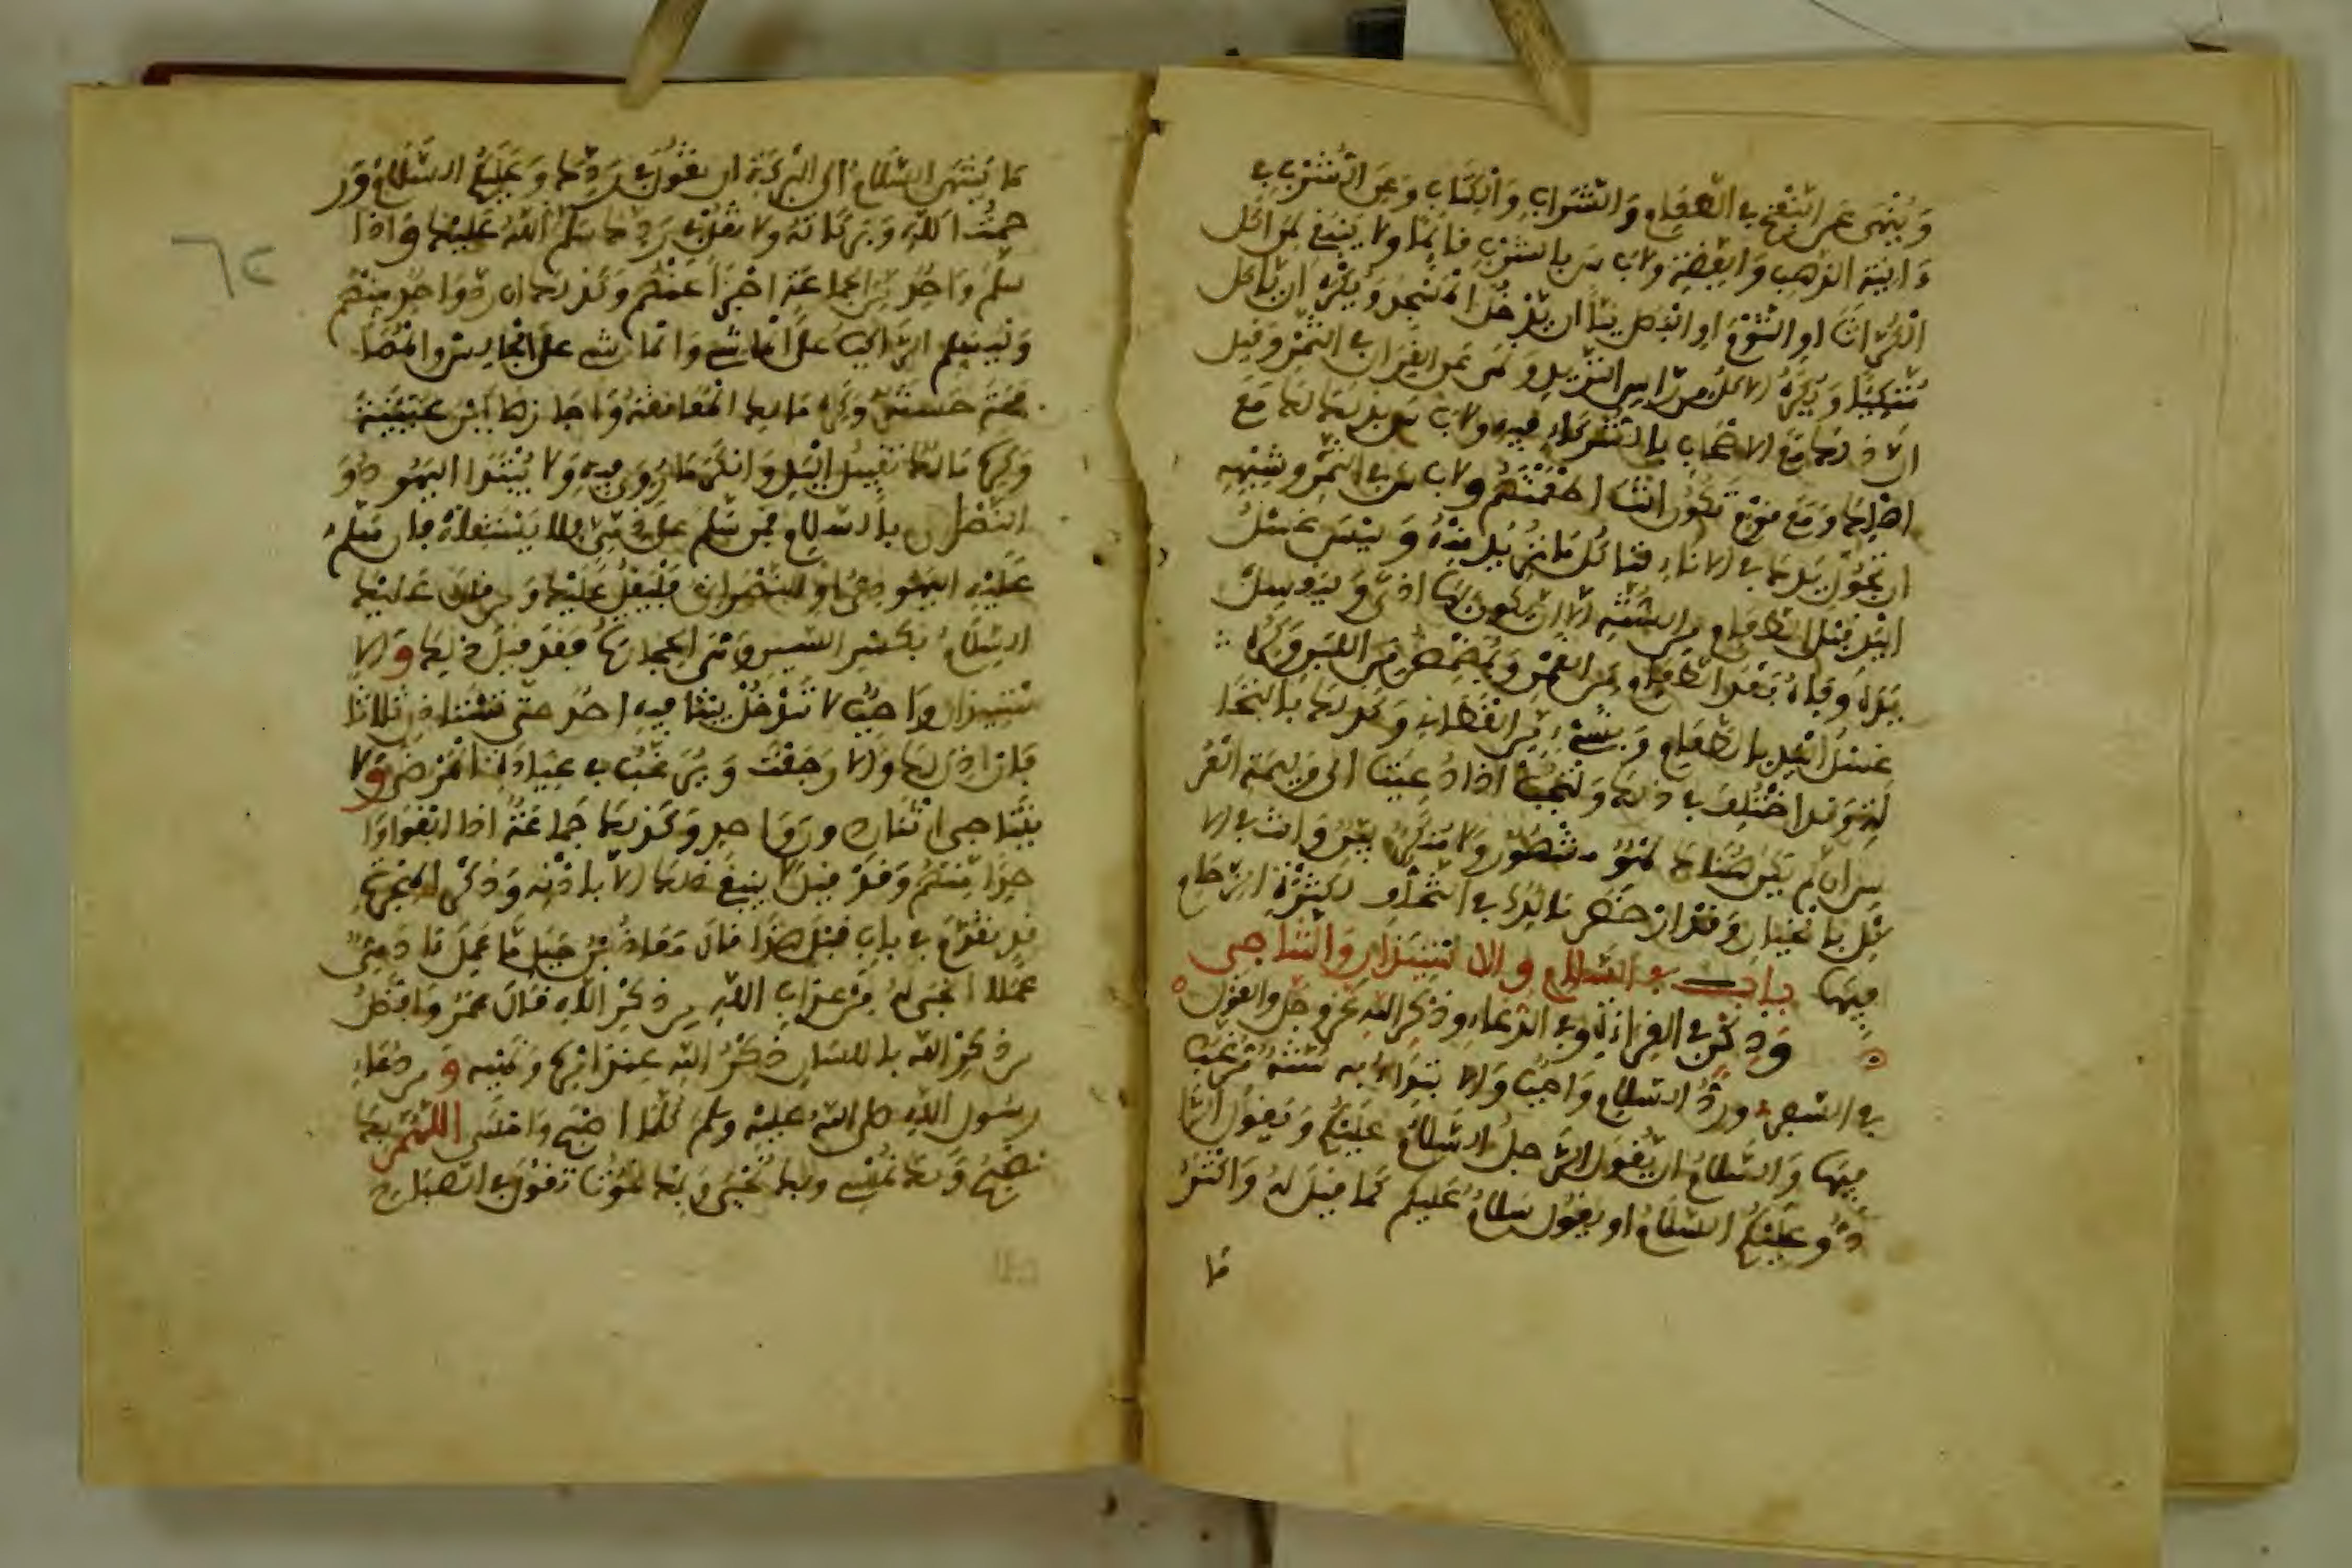 وَيُنْهَى عَنِ النَّفْخِ فِي الطَّعَامِ وَالشَّرَابِ وَالْكِتَابِ وَعَنِ الشُّرْبِ فِي
ءَانِيَةِ الذَّهَبِ وَالْفِضَّةِ وَلَا بَأْسَ بِالشُّرْبِ قَائِمًا وَلَا يَنْبَغِي لِمَنْ أَكَلَ
الْكُرَّاثَ أَوِ الثُّومَ أَوِ الْبَصَلَ نِيًّا أَنْ يَدْخُلَ الْمَسْجِدَ وَيُكْرَهُ أَنْ يَأْكُلَ
مُتَّكِئًا وَيُكْرَهُ الْأَكْلُ مِنْ رَأْسِ الثَّرِيدِ وَنُهِيَ عَنِ الْقِرَانِ فِي التَّمْرِ وَقِيلَ
إِنَّ ذَلِكَ مَعَ الْأَصْحَابِ الشُّرَكَاءِ فِيهِ وَلَا بَأْسَ بِذَلِكَ مَعَ
أَهْلِكَ وَمَعَ قَوْمٍ تَكُونُ أَنْتَ أَطْعَمْتَهُمْ وَلَا بَأْسَ فِي التَّمْرِ وَشِبْهِهِ
أَنْ تَجُولَ يَدُكَ فِي الْإِنَاءِ لِتَأْكُلَ مَا تُرِيدُ مِنْهُ وَلَيْسَ غَسْلُ
الْيَدِ قَبْلَ الطَّعَامِ مِنَ السُّنَّةِ إِلَّا أَنْ يَكُونَ بِهَا أَذًى وَلْيَغْسِلْ
يَدَهُ وَفَاهُ بَعْدَ الطَّعَامِ مِنَ الْغَمَرِ وَيُمَضْمِضُ مِنَ اللَّبَنِ وَكُرِهَ
غَسْلُ الْيَدِ بِالطَّعَامِ وَبِشَيْءٍ مِنَ الْقَطَانِي وَكَذَلِكَ بِالنُّخَا
لَةِ وَقَدِ اخْتُلِفَ فِي ذَلِكَ وَلْتُجِبْ إِذَا دُعِيتَ إِلَى وَلِيمَةِ الْعُرْ
سِ إِنْ لَمْ يَكُنْ هُنَاكَ لَهْوٌ مَشْهُورٌ وَلَا مُنْكَرٌ بَيِّنٌ وَأَنْتَ فِي الْأَ
كْلِ بِالْخِيَارِ وَقَدْ أَرْخَصَ مَالِكٌ فِي التَّخَلُّفِ لِكَثْرَةِ الزِّحَامِ
فِيهَا بَابٌ فِي السَّلَامِ وَالِاسْتِئْذَانِ وَالتَّنَاجِي
وَذِكْرٍ فِي الْقِرَاءَةِ وَفِي الدُّعَاءِ وَذِكْرِ اللَّهِ عَزَّ وَجَلَّ وَالْقَوْلِ
فِي السَّفَرِ وَرَدُّ السَّلَامِ وَاجِبٌ وَالِابْتِدَاءُ بِهِ سُنَّةٌ مُرَغَّبٌ
فِيهَا وَالسَّلَامُ أَنْ يَقُولَ الرَّجُلُ السَّلَامُ عَلَيْكُمْ وَيَقُولَ الرَّا
دُّ وَعَلَيْكُمُ السَّلَامُ أَوْ يَقُولُ سَلَامٌ عَلَيْكُمْ كَمَا قِيلَ لَهُ وَأَكْثَرُ
مَا
مَا يَنْتَهِي السَّلَامُ إِلَى الْبَرَكَةِ أَنْ تَقُولَ فِي رَدِّكَ وَعَلَيْكُمُ السَّلَامُ وَرَ
حْمَتُ اللَّهِ وَبَرَكَاتُهُ وَلَا تَقُلْ فِي رَدِّكَ سَلَامُ اللَّهِ عَلَيْكَ وَإِذَا
سَلَّمَ وَاحِدٌ مِنَ الْجَمَاعَةِ أَجْزَأَ عَنْهُمْ وَكَذَلِكَ إِنْ رَدَّ وَاحِدٌ مِنْهُمْ
وَلْيُسَلِّمِ الرَّاكِبُ عَلَى الْمَاشِي وَالْمَاشِي عَلَى الْجَالِسِ وَالْمُصَا
فَحَةُ حَسَنَةٌ وَكَرِهَ مَالِكٌ الْمُعَانَقَةَ وَأَجَازَهَا ابْنُ عُيَيْنَةَ
وَكَرِهَ مَالِكٌ تَقْبِيلَ الْيَدِ وَأَنْكَرَ مَا رُوِيَ فِيهِ وَلَا يُبْتَدَأُ الْيَهُودُ وَ
النَّصَارَى بِالسَّلَامِ فَمَنْ سَلَّمَ عَلَى ذِمِّيٍّ فَلَا يَسْتَقِيلُهُ فَإِنْ سَلَّمَ
عَلَيْهِ الْيَهُودِيُّ أَوِ النَّصْرَانِيُّ فَلْيَقُلْ عَلَيْكَ وَمَنْ قَالَ عَلَيْكَ
السِّلَامُ بِكَسْرِ السِّينِ وَهِيَ الْحِجَارَةُ فَقَدْ قِيلَ ذَلِكَ وَالِا
سْتِئْذَانُ وَاجِبٌ لَا تَدْخُلْ بَيْتًا فِيهِ أَحَدٌ حَتَّى تَسْتَأْذِنَ ثَلَاثًا
فَإِنْ أُذِنَ لَكَ وَإِلَّا رَجَعْتَ وَيُرَغَّبُ فِي عِيَادَةِ الْمَرْضَى وَلَا
يَتَنَاجَى اثْنَانِ دُونَ وَاحِدٍ وَكَذَلِكَ جَمَاعَةٌ إِذَا أَبْقَوْا وَا
حِدًا مِنْهُمْ وَقَدْ قِيلَ لَا يَنْبَغِي ذَلِكَ إِلَّا بِإِذْنِهِ وَذِكْرُ الْهِجْرَةِ
قَدْ تَقَدَّمَ فِي بَابٍ قَبْلَ هَذَا قَالَ مُعَاذُ بْنُ جَبَلٍ مَا عَمِلَ ءَادَمِيٌّ
عَمَلًا أَنْجَى لَهُ مِنْ عَذَابِ اللَّهِ مِنْ ذِكْرِ اللَّهِ قَالَ عُمَرُ وَأَفْضَلُ
مِنْ ذِكْرِ اللَّهِ بِاللِّسَانِ ذِكْرُ اللَّهِ عِنْدَ أَمْرِهِ وَنَهْيِهِ وَمِنْ دُعَاءِ
رَسُولِ اللَّهِ صَلَّى اللَّهُ عَلَيْهِ وَسَلَّمَ كُلَّمَا أَصْبَحَ وَأَمْسَى اللَّهُمَّ بِكَ
نُصْبِحُ وَبِكَ نُمْسِي وَبِكَ نَحْيَى وَبِكَ نَمُوتُ تَقُولُ فِي الصَّبَاحِ